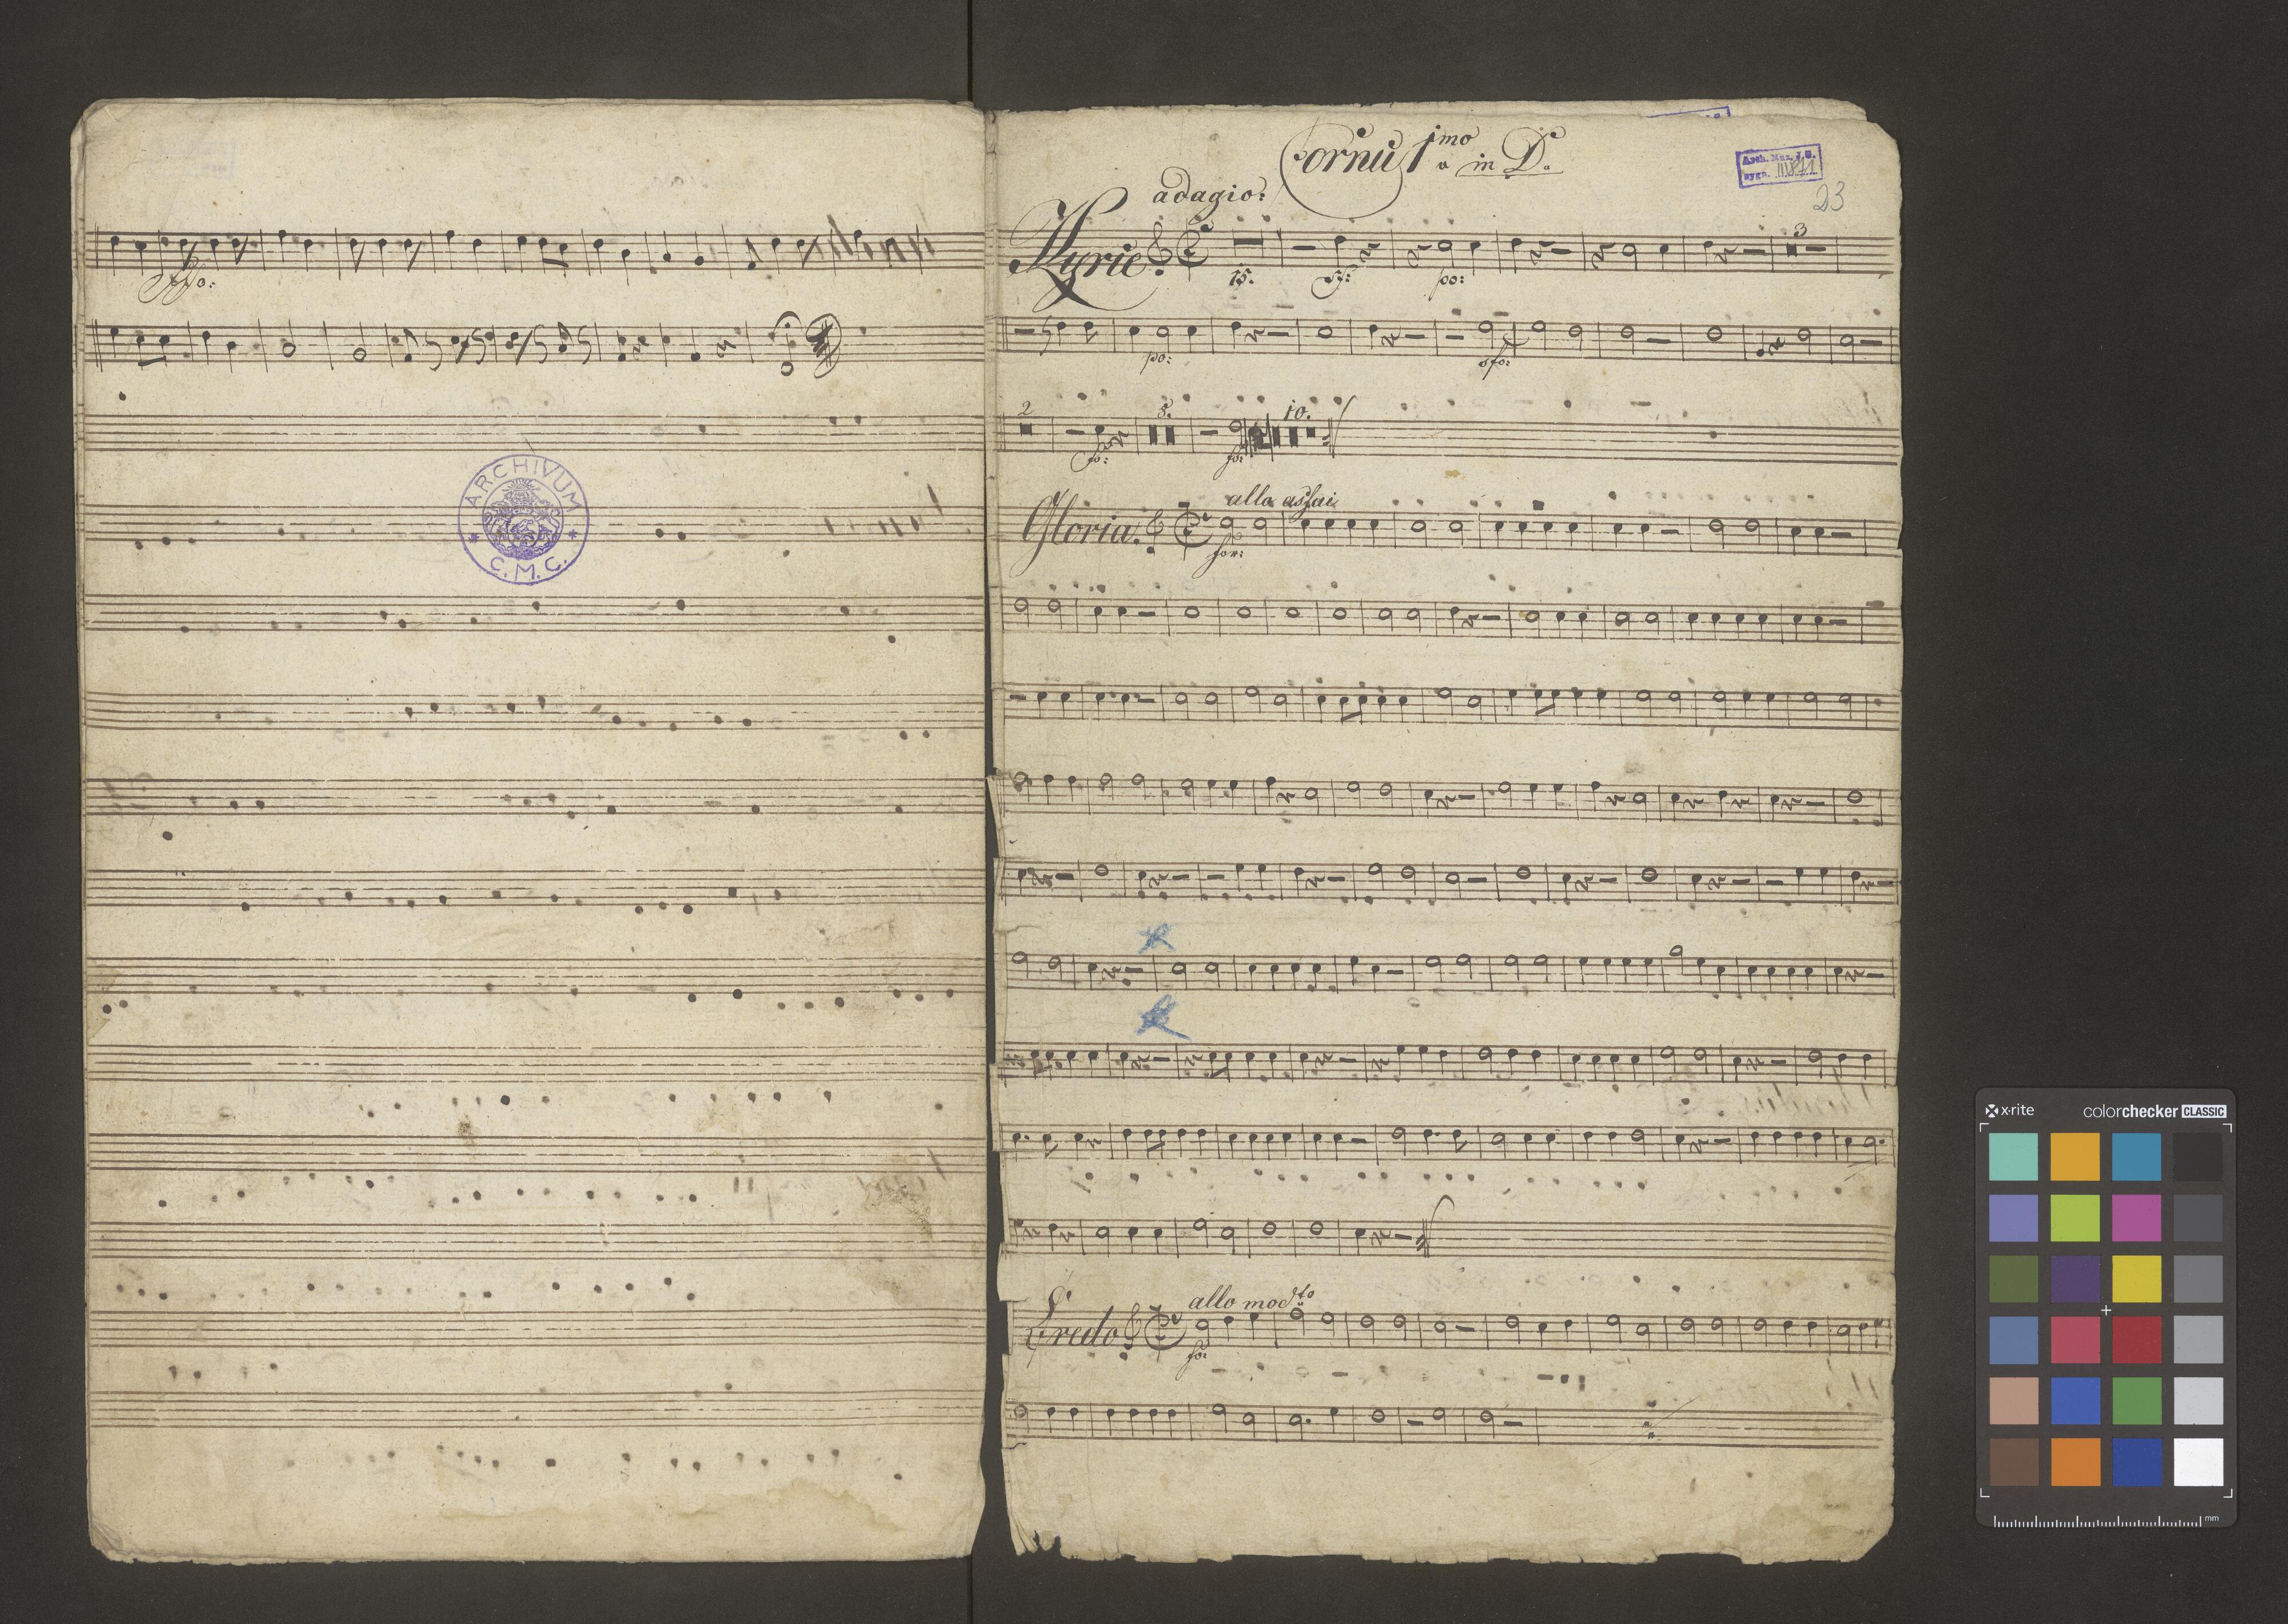 ffo:
ARCHIVUM
* C. M. C. *
Cornu 1mo in D.
Arch. Muz. J. G.
sygn. III 871
23
adagio:
Kyrie
15. po:
3
po: sfo:
2 8. 10.
fo: fo:
allo assai
Gloria.
for:
allo modto
Credo
fo:
x-rite colorchecker CLASSIC
mm